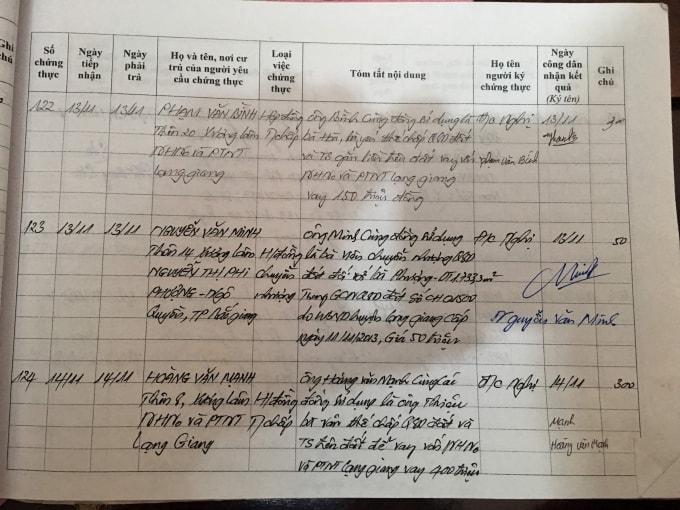 Ghi
chú
Số
chứng
thực
Ngày
tiếp
nhận
Ngày
phải
trả
Họ và tên, nơi cư
trú của người yêu
cầu chứng thực
Loại
việc
chứng
thực
Tóm tắt nội dung
Họ tên
người ký
chứng thực
Ngày
công dân
nhận kết
quả
(Ký tên)
Ghi
chú
122
13/11
13/11
PHẠM VĂN BÌNH
Thôn 20 Xương Lâm
NHNo và PTNT
Lạng giang
H/đồng
T/chấp
ông Bình Cùng đồng sử dụng là
bà Hoa, thế chấp QSD đất
và TS gắn liền trên đất vay vốn
NHNo và PTNT Lạng giang
vay 150 triệu đồng
Đ/c Nghị
13/11
Phạm Văn Bình
123
13/11
13/11
NGUYỄN VĂN MINH
Thôn 14 Xương Lâm
NGUYỄN THỊ PHI
PHƯỢNG - NGÔ
Quyền, TP Bắc giang
H/đồng
chuyển
nhượng
ông Minh Cùng đồng sử dụng
là bà Vân chuyển nhượng QSD
đất cho bà Phượng - DT 1.733,3m²
Trong GCNQSD đất số CH
do UBND huyện Lạng giang Cấp
ngày 11/11/2013, Giá 50 triệu
Đ/c Nghị
13/11
Minh
Nguyễn Văn Minh
50
124
14/11
14/11
HOÀNG VĂN MẠNH
Thôn 8, Xương Lâm
NHNo và PTNT
Lạng Giang
H/đồng
T/chấp
ông Hoàng Văn Mạnh Cùng các
đồng sử dụng là ông Thiệu
bà Vân thế chấp QSD đất và
TS trên đất để vay vốn NHNo
và PTNT Lạng giang vay 400 triệu
Đ/c Nghị
14/11
Mạnh
Hoàng Văn Mạnh
300